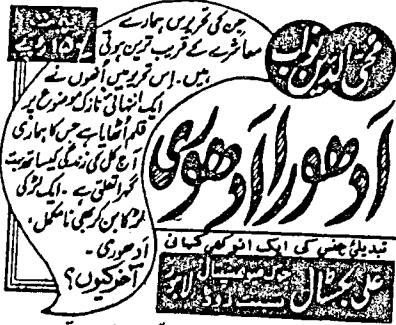 محی الدین نواب
جن کی تحریریں ہمارے
معاشرے کے قریب ترین ہوتی
ہیں۔ اِس تحریر میں اُنھوں نے
ایک انتہائی نازک موضوع پر
قلم اُٹھایا ہے جس کا ہماری
آج کل کی زندگی کیساتھ بہت
گہرا تعلق ہے۔ ایک لڑکی
لڑکا بن کر بھی نامکمل،
اَدھوری۔
آخر کیوں؟
قیمت
روپے
اَدھورا اَدھوری
تبدیلیٔ جنس کی ایک انوکھی کہانی
علی بکسٹال
نسبت روڈ
لاہور